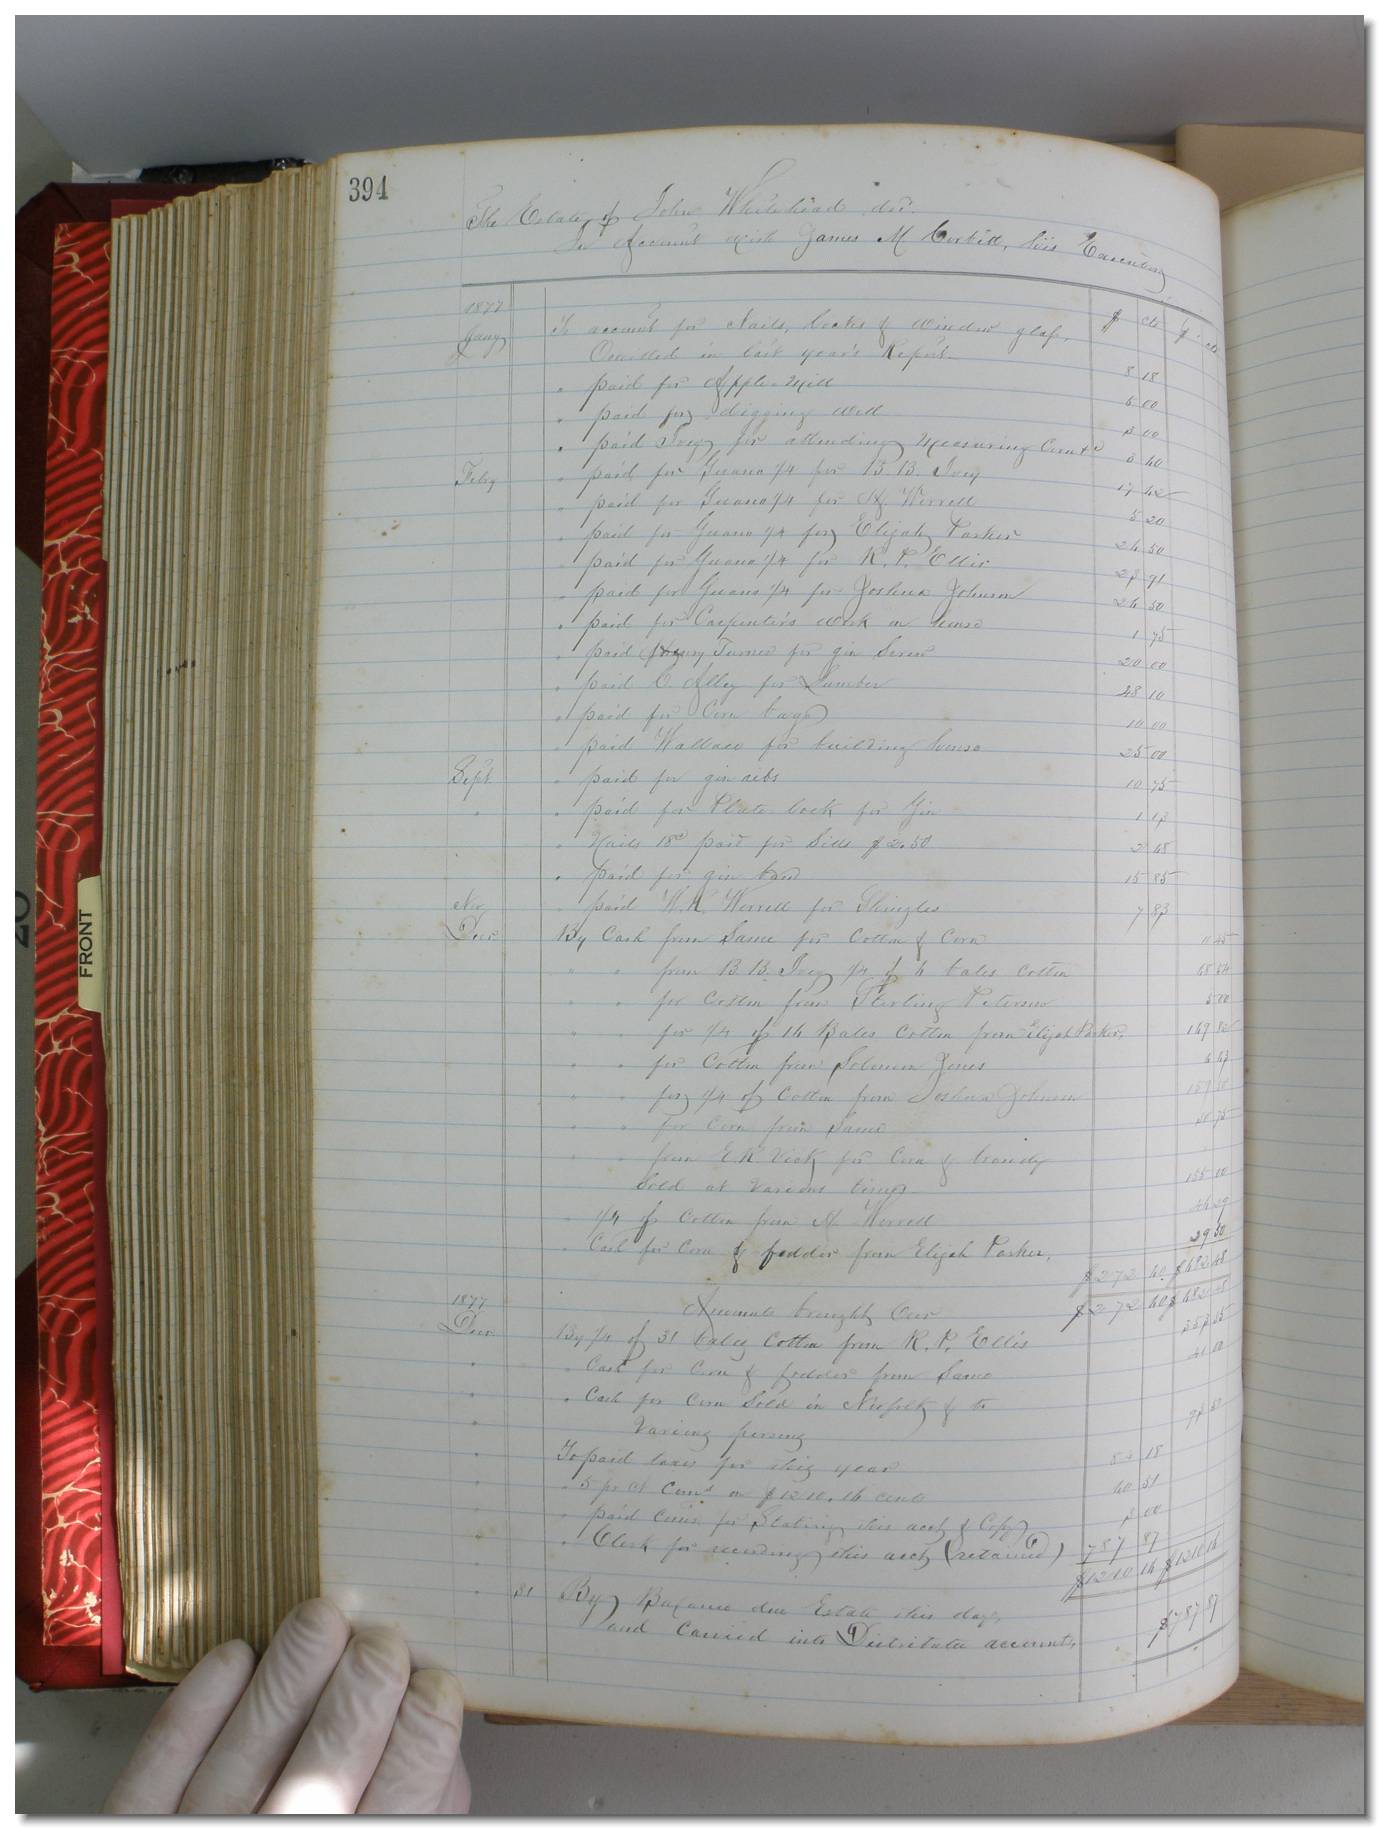 394
The Estate of John Whitehead dec.
In Account with James M Corbitt, his Executor
1877 $ cts $ cts
Jany To account for Nails, locks & window glass,
Omitted in last year's Report 8 18
" paid for Apple Mill 6 00
" paid for digging well 3 00
" paid Ivey for attending Measuring Corn &c 3 40
Feby " paid for Guano 1/4 for B. B. Ivey 17 42
" paid for Guano 1/4 for A Worrell 5 20
" paid for Guano 1/4 for Elijah Parker 24 50
" paid for Guano 1/4 for R. P. Ellis 27 91
" paid for Guano 1/4 for Joshua Johnson 24 50
" paid for Carpenter's work on house 1 75
" paid Henry Turner for gin Screw 20 00
" paid C. Alley for Lumber 48 10
" paid for Corn bags 10 00
" paid Wallace for building house 25 00
Sept. " paid for gin ribs 10 75
" " paid for Plate lock for Gin 1 13
" Nails 18c paid for Sills $2.50 2 68
" paid for gin band 15 85
Nov " paid W. R. Worrell for Shingles 7 83
Decr By Cash from Same for Cotton & Corn 11 45
" " from B. B. Ivey 1/4 of 4 bales Cotton
" " for Cotton from Sterling Peterson 5 00
" " for 1/4 of 14 Bales Cotton from Elijah Parker,
" " for Cotton from Solomon Jones
" " for 1/4 of Cotton from Joshua Johnson
" " for Corn from Same
" " from E R Vick for Corn & brandy
Sold at Various times 155 10
" 1/4 of Cotton from A Worrell 44 29
" Cash for Corn & fodder from Elijah Parker, 29 50
$272 40 $682 48
1877 Amounts brought Over $272 40 $682 48
Decr By 1/4 of 31 bales Cotton from R. P. Ellis
" " Cash for Corn & fodder from Same 41 00
" " Cash for Corn Sold in Norfolk & to
" Varing persons
" To paid taxes for this year 18
" " 5 pr ct Coms on $1210.16 cents 60 51
" " paid Comr for Stating this acct & Copy 00
" " Clerk for recording this acct (retained) 787 87
$1210 16 $1210 16
" 31 By Balance due Estate this day,
and Carried into Distributee account, $787 87
FRONT